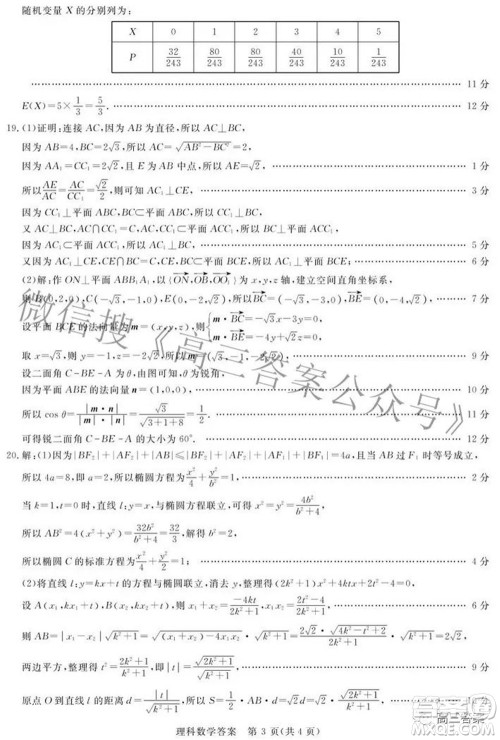 随机变量 X 的分别列为：
X 0 1 2 3 4 5
P 32/243 80/243 80/243 40/243 10/243 1/243
…… 11 分
E(X)=5×1/3=5/3. …… 12 分
19.(1)证明:连接 AC,因为 AB 为直径,所以 AC⊥BC,
因为 AB=4,BC=2√3,所以 AC=√(AB²-BC²)=2.
因为 AA₁=CC₁=2√2,且 E 为 AB 中点,所以 AE=√2, …… 1 分
所以 AE/AC=AC/CC₁=√2/2,则可知 AC₁⊥CE, …… 3 分
因为 CC₁⊥平面 ABC,BC⊂平面 ABC,所以 CC₁⊥BC,
又 AC⊥BC,AC∩CC₁=C,AC,CC₁⊂平面 ACC₁,所以 BC⊥平面 ACC₁,
因为 AC₁⊂平面 ACC₁,所以 BC⊥AC₁, …… 5 分
又因为 AC₁⊥CE,CE∩BC=C,CE,BC⊂平面 BCE,所以 AC₁⊥平面 BCE; …… 6 分
(2)解:作 ON⊥平面 ABB₁A₁,以{ON,OB,OO₁}为 x,y,z 轴,建立空间直角坐标系,
则B(0,2,0),C(-√3,-1,0),E(0,-2,√2),所以BC=(-√3,-3,0),BE=(0,-4,√2), …… 7 分
设平面 BCE 的法向量为 m=(x,y,z),则{m·BC=-√3x-3y=0, m·BE=-4y+√2z=0.
取 x=√3,则 y=-1,z=-2√2,所以 m=(√3,-1,-2√2), …… 9 分
设二面角 C-BE-A 为θ,由图可知,θ 为锐角,
因为平面 ABE 的法向量 n=(1,0,0),
所以 cos θ=|m·n|/|m|·|n|=√3/√(3+1+8)=1/2. …… 11 分
可得锐二面角 C-BE-A 的大小为 60°. …… 12 分
20.解:(1)因为|BF₂|+|AF₂|+|AB|≤|BF₂|+|AF₂|+|AF₁|+|BF₁|=4a,且当 AB 过 F₁ 时等号成立,
所以 4a=8,即 a=2,所以椭圆方程为x²/4+y²/b²=1. …… 2 分
当 k=1,t=0 时,直线 l:y=x,与椭圆方程联立,可得 x²=y²=4b²/(b²+4),
所以 AB²=4(x²+y²)=32b²/(b²+4)=32/3,解得 b²=2,
所以椭圆 C 的标准方程为x²/4+y²/2=1; …… 4 分
(2)将直线 l:y=kx+t 与椭圆联立,消去 y,整理得(2k²+1)x²+4ktx+2t²-4=0,
设 A(x₁,kx₁+t),B(x₂,kx₂+t),则 x₁+x₂=-4kt/(2k²+1),x₁x₂=(2t²-4)/(2k²+1), …… 6 分
则 AB=|x₁-x₂|√(k²+1)=√((x₁+x₂)²-4x₁x₂)·√(k²+1)=2√2·√(4k²-t²+2)/(2k²+1)·√(k²+1)=2√2,
两边平方,整理得 t²=(2k²+1)/(k²+1),即|t|=√(2k²+1)/√(k²+1), …… 9 分
原点 O 到直线 l 的距离 d=|t|/√(k²+1),所以 S=1/2·AB·d=√2d=√2·√(2k²+1)/(k²+1), ……
理科数学答案 第 3 页(共 4 页)
微信搜《高三答案公众号》
高三答案